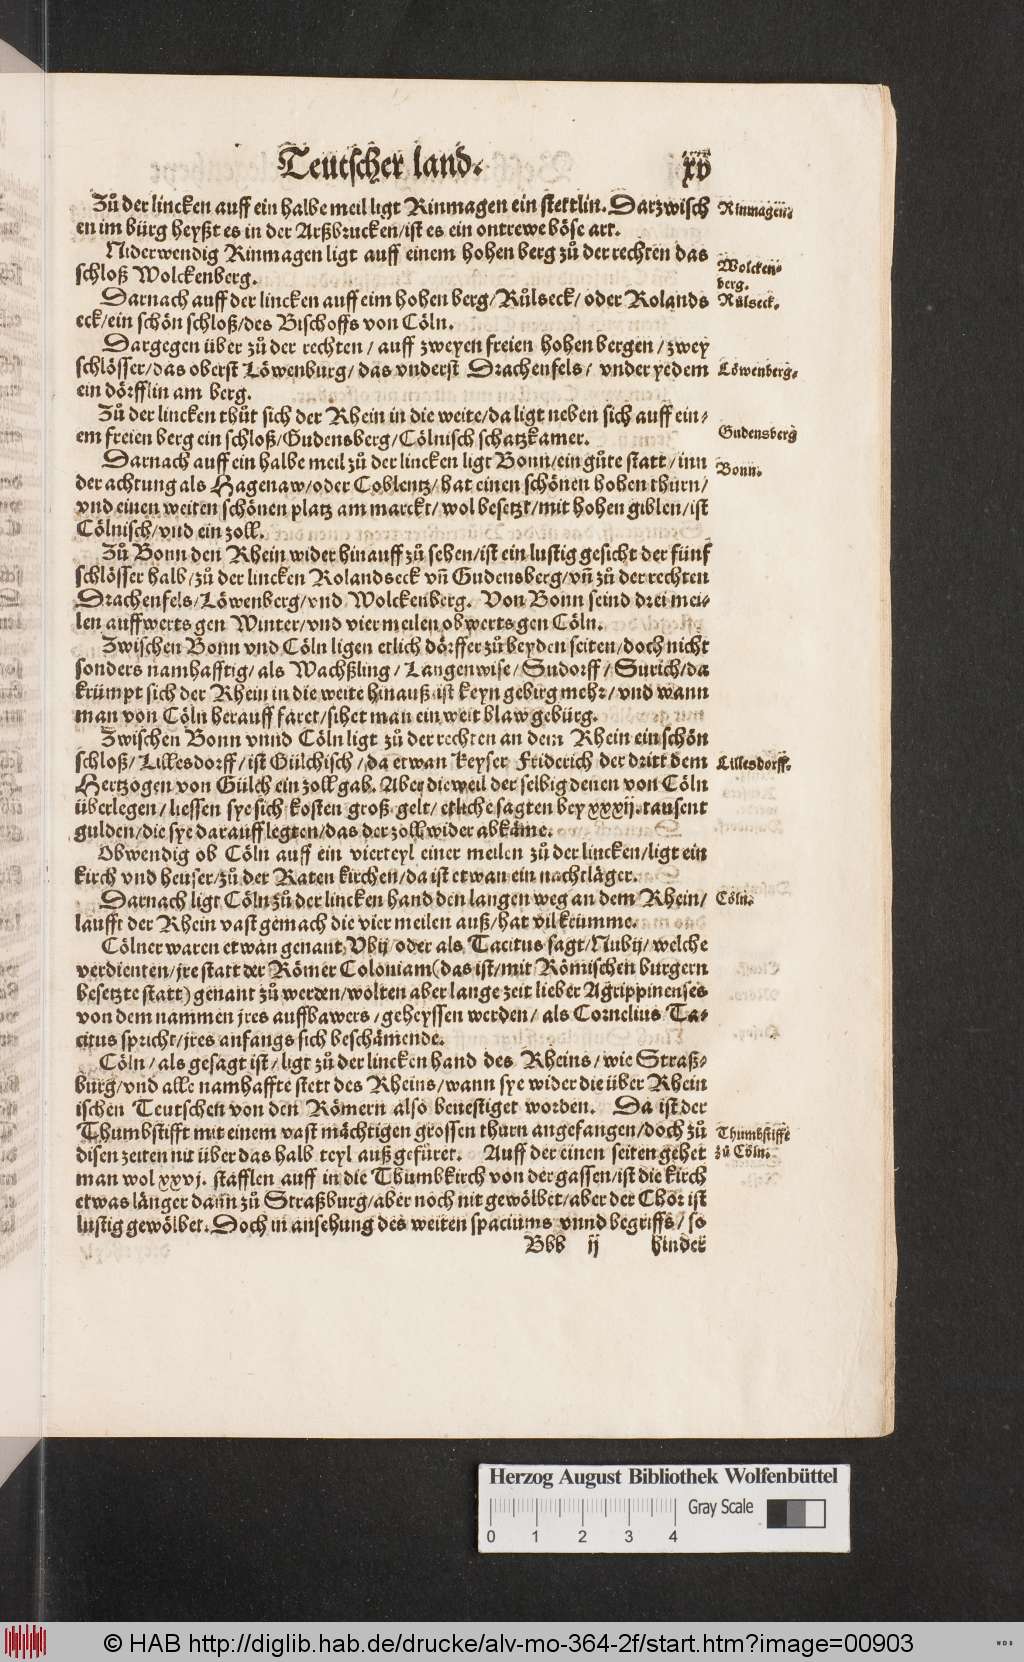 Teutscher land. xv
Zů der lincken auff ein halbe meil ligt Rinmagen ein stettlin. Darzwisch
en im bürg heyßt es in der Arßbrucken/ist es ein ontrewe böse art.
Rinmagen.
Niderwendig Rinmagen ligt auff einem hohen berg zů der rechten das
schloß Wolckenberg.
Wolcken-
berg.
Darnach auff der lincken auff eim hohen berg/Růlseck/oder Rolands
eck/ein schön schloß/des Bischoffs von Cöln.
Růlseck.
Dargegen über zů der rechten/auff zweyen freien hohen bergen/zwey
schlösser/das oberst Löwenburg/das vnderst Drachenfels/vnder yedem
ein dörfflin am berg.
Löwenberg.
Zů der lincken thůt sich der Rhein in die weite/da ligt neben sich auff ein-
em freien berg ein schloß/Gudensberg/Cölnisch schatzkamer.
Gudensberg
Darnach auff ein halbe meil zů der lincken ligt Bonn/ein gůte statt/inn
der achtung als Hagenaw/oder Coblentz/hat einen schönen hohen thurn/
vnd einen weiten schönen platz am marckt/wol besetzt/mit hohen giblen/ist
Cölnisch/vnd ein zoll.
Bonn.
Zů Bonn den Rhein wider hinauff zů sehen/ist ein lustig gesicht der fünf
schlösser halb/zů der lincken Rolandseck vñ Gudensberg/vñ zů der rechten
Drachenfels/Löwenberg/vnd Wolckenberg. Von Bonn seind drei mei-
len auffwerts gen Winter/vnd vier meilen obwerts gen Cöln.
Zwischen Bonn vnd Cöln ligen etlich dörffer zů beyden seiten/doch nicht
sonders namhafftig/als Wachßling/Langenwise/Sudorff/Surich/da
krümpt sich der Rhein in die weite hinauß ist keyn gebirg mehr/vnd wann
man von Cöln herauff faret/sihet man ein weit blaw gebürg.
Zwischen Bonn vnnd Cöln ligt zů der rechten an dem Rhein ein schön
schloß/Lillesdorff/ist Gülchisch/da etwan keyser Friderich der dritt dem
Hertzogen von Gülch ein zoll gab. Aber dieweil der selbig denen von Cöln
überlegen/liessen sye sich kosten groß gelt/etliche sagten bey xxxij. tausent
gulden/die sye darauff legten/das der zoll wider abkäme.
Lillesdorff.
Obwendig ob Cöln auff ein vierteyl einer meilen zů der lincken/ligt ein
kirch vnd heuser/zů der Raten kirchen/da ist etwan ein nachtläger.
Darnach ligt Cöln zů der lincken hand den langen weg an dem Rhein/
laufft der Rhein vast gemach die vier meilen auß/hat vil krümme.
Cöln.
Cölner waren etwan genant Vbij/oder als Tacitus sagt/Nubij/welche
verdienten/jre statt der Römer Coloniam (das ist/mit Römischen burgern
besetzte statt) genant zů werden/wolten aber lange zeit lieber Agrippinenses
von dem nammen jres auffbawers/geheyssen werden/als Cornelius Ta-
citus spricht/jres anfangs sich beschämende.
Cöln/als gesagt ist/ligt zů der lincken hand des Rheins/wie Straß-
burg/vnd alle namhaffte stett des Rheins/wann sye wider die über Rhein
ischen Teutschen von den Römern also benestiget worden. Da ist der
Thumbstifft mit einem vast mächtigen grossen thurn angefangen/doch zů
disen zeiten nit über das halb teyl außgefüret. Auff der einen seiten gehet
man wol xxvj. stafflen auff in die Thumbkirch von der gassen/ist die kirch
etwas länger dann zů Straßburg/aber noch nit gewölbet/aber der Chor ist
lustig gewölbet. Doch in ansehung des weiten spaciums vnnd begriffs/so
Thumbstifft
zů Cöln.
Bbb ij hinder
Herzog August Bibliothek Wolfenbüttel
Gray Scale
0 1 2 3 4
© HAB http://diglib.hab.de/drucke/alv-mo-364-2f/start.htm?image=00903